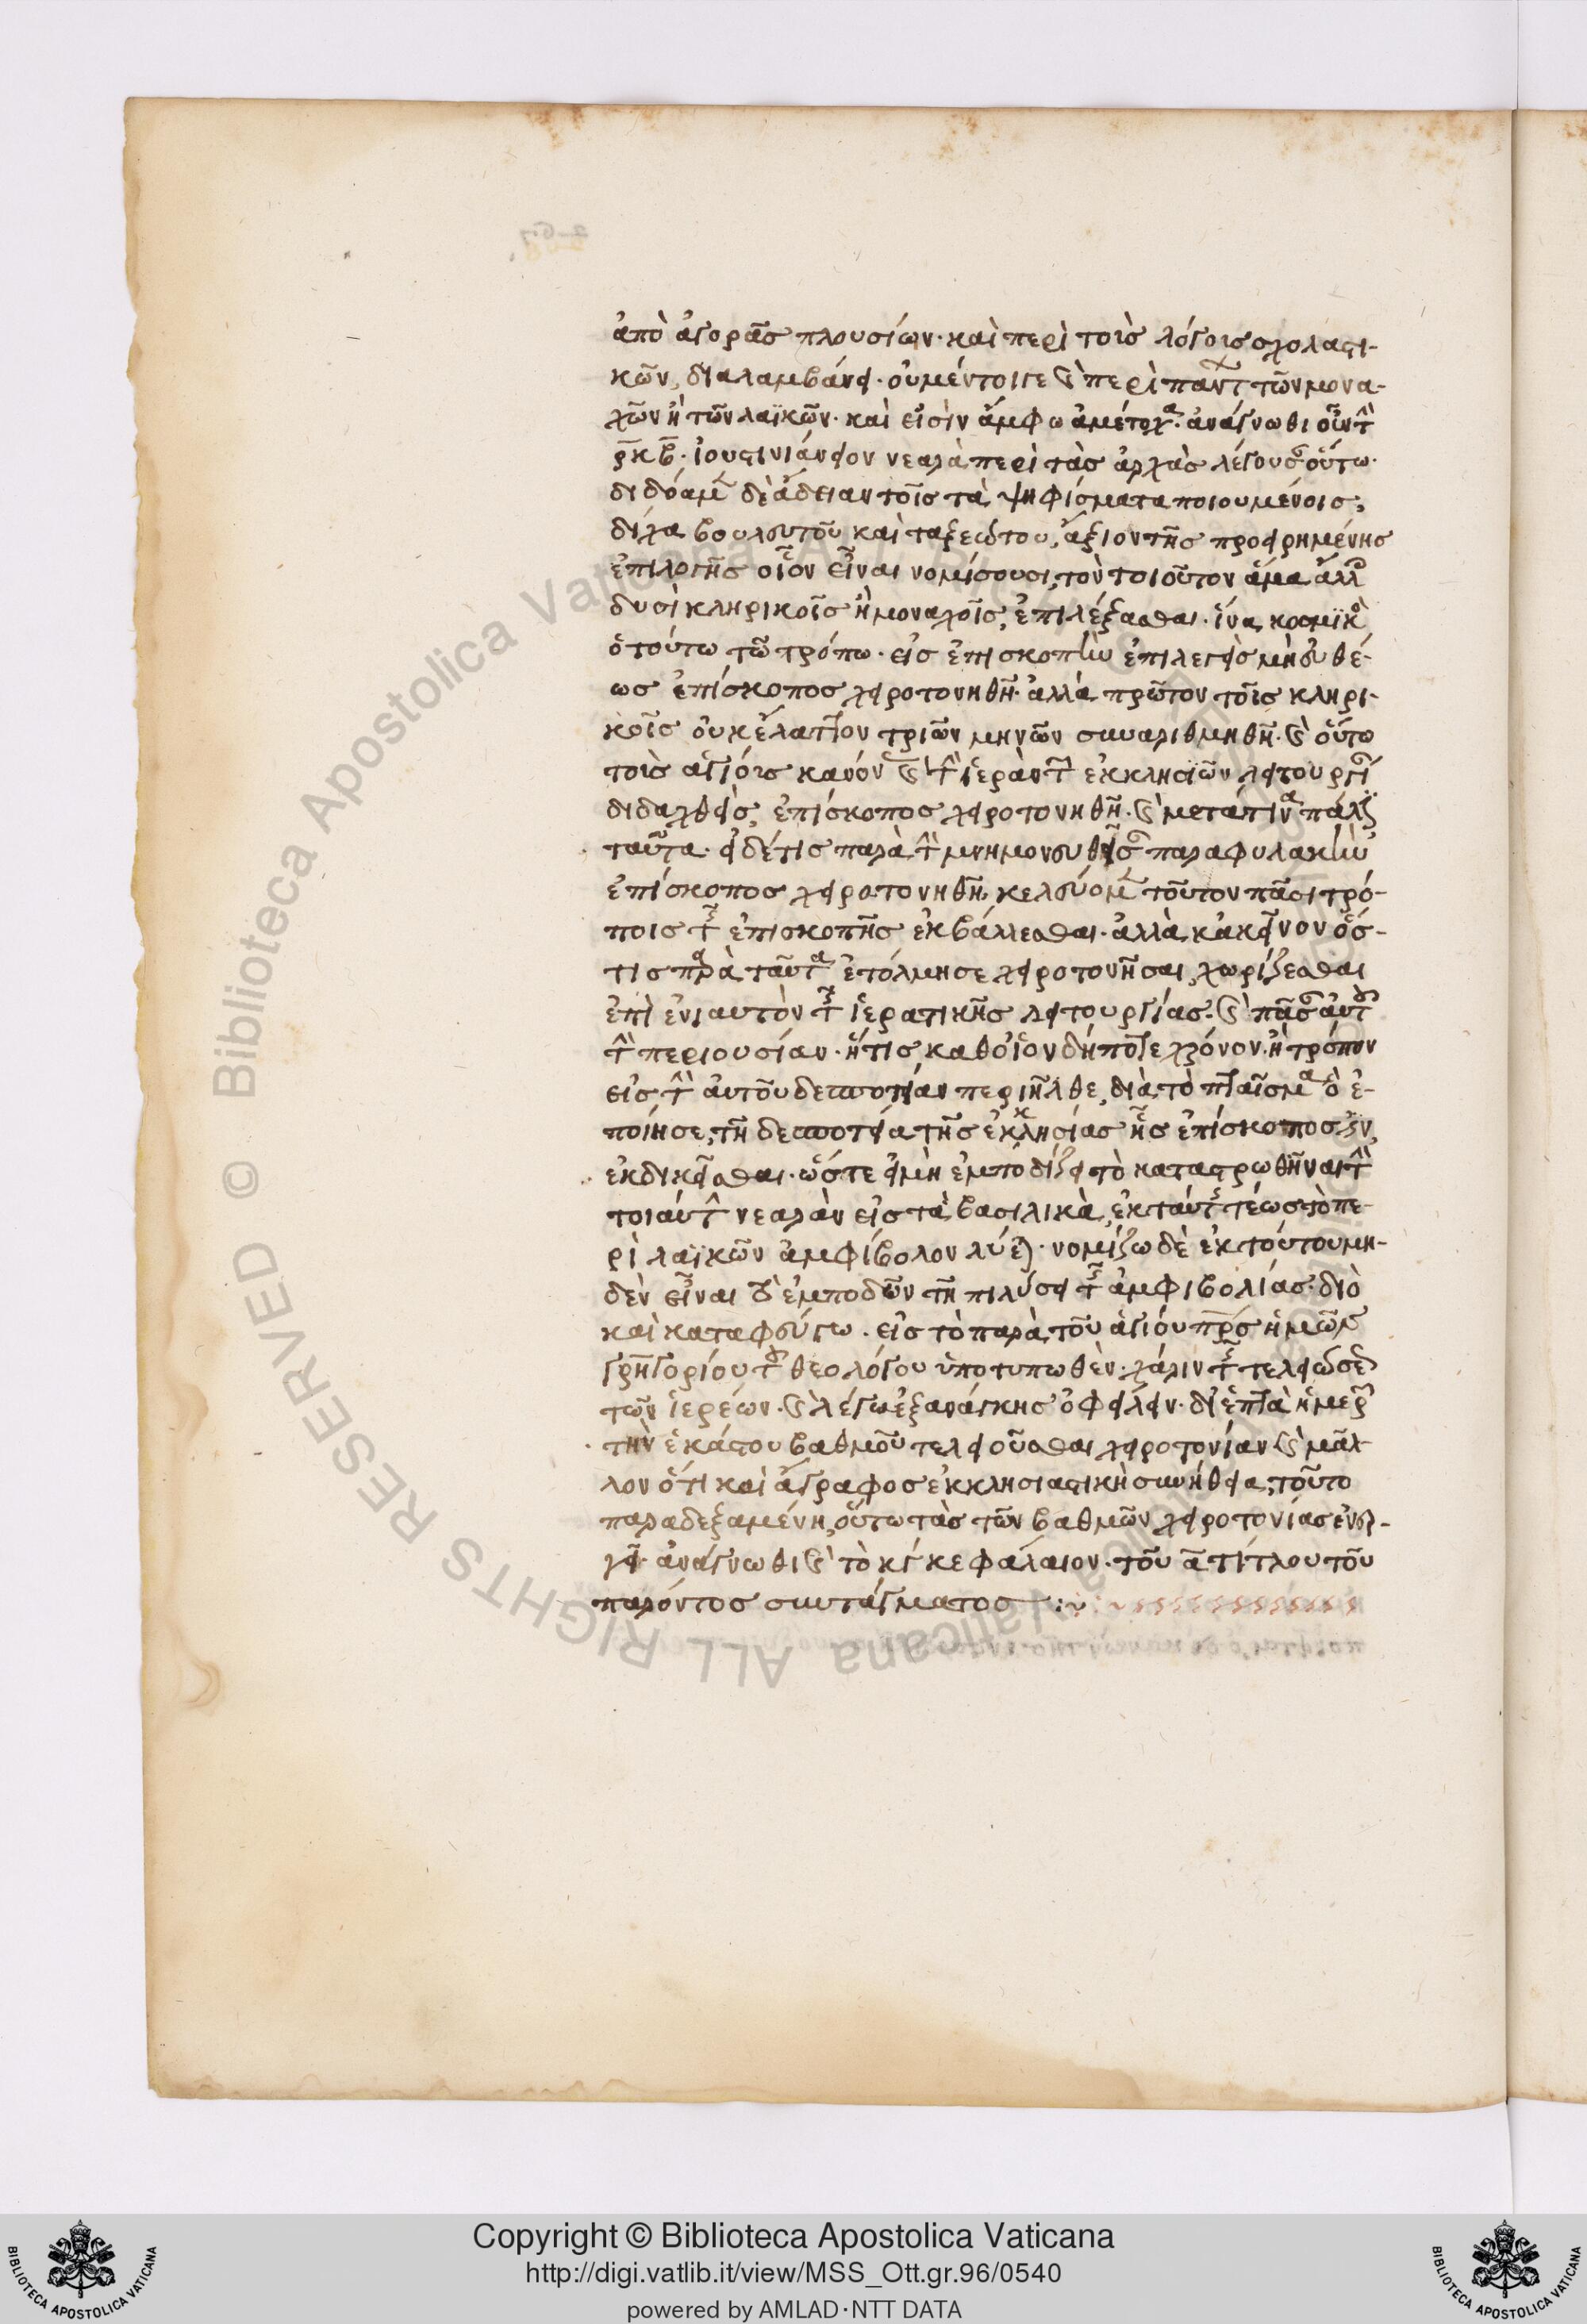 ἀπὸ ἀγορᾶς πλουσίων· καὶ περὶ τοῖς λόγοις σχολαστι-
κῶν, διαλαμβάνει· οὐ μέντοιγε καὶ περὶ πάντων τῶν μονα-
χῶν ἢ τῶν λαϊκῶν· καὶ εἰσὶν ἄμφω ἀμέτοχα· ἀνάγνωθι οὖν τὴν
ρκβ· ἰουστινιάνειον νεαρὰ περὶ τὰς ἀρχὰς λέγουσαν οὕτω·
δίδομεν δὲ ἄδειαν τοῖς τὰ ψηφίσματα ποιουμένοις,
δίχα βουλευτοῦ καὶ ταξεώτου, ἄξιον τῆς προειρημένης
ἐπιλογῆς οἷον εἶναι νομίσουσι, τὸν τοιοῦτον ἅμα ἄλλοις
δυσὶ κληρικοῖς ἢ μοναχοῖς, ἐπιλέξασθαι· ἵνα κοσμικὸς
ὁ τούτω τῶ τρόπω· εἰς ἐπισκοπὴν ἐπιλεγεὶς μὴ εὐθέ-
ως ἐπίσκοπος χειροτονηθῆ· ἀλλὰ πρῶτον τοῖς κληρι-
κοῖς οὐκ ἔλαττον τριῶν μηνῶν συναριθμηθῆ· καὶ οὕτω
τοὺς ἁγίους κανόνας καὶ τὴν ἱερὰν τῶν ἐκκλησιῶν λειτουργίαν
διδαχθεὶς, ἐπίσκοπος χειροτονηθῆ· καὶ μετά τινα πάλιν
ταῦτα· εἰ δέ τις παρὰ τὴν μνημονευθεῖσαν παραφυλακὴν
ἐπίσκοπος χειροτονηθῆ, κελεύομεν τοῦτον πᾶσι τρό-
ποις τῆς ἐπισκοπῆς ἐκβάλλεσθαι· ἀλλὰ κἀκεῖνον ὅσ-
τις παρὰ ταῦτα ἐτόλμησε χειροτονῆσαι, χωρίζεσθαι
ἐπὶ ἐνιαυτὸν τῆς ἱερατικῆς λειτουργίας· καὶ πᾶσαν αὐτοῦ
τὴν περιουσίαν· ἥτις καθοἱονδήποτε χρόνον· ἢ τρόπον
εἰς τὴν αὐτοῦ δεσποτείαν περιῆλθε, διὰ τὸ πταῖσμα ὃ ἐ-
ποίησε, τῆ δεσποτεία τῆς ἐκκλησίας ἧς ἐπίσκοπος ἦν,
ἐκδικεῖσθαι· ὥστε εἰ μὴ ἐμποδίζει τὸ καταστρωθῆναι τὴν
τοιαύτην νεαρὰν εἰς τὰ βασιλικὰ, ἐκ ταύτης τέως τὸ πε-
ρὶ λαϊκῶν ἀμφίβολον λύεται· νομίζω δὲ ἐκ τούτου μη-
δὲν εἶναι τὸ ἐμποδὼν τῆ ἐπιλύσει τῆς ἀμφιβολίας· διὸ
καὶ καταφεύγω· εἰς τὸ παρὰ τοῦ ἁγίου πρς ἡμῶν
γρηγορίου τοῦ θεολόγου ὑποτυπωθὲν· χάριν τῆς τελειώσεως
τῶν ἱερέων· καὶ λέγω ἐξανάγκης ὀφείλειν· δι' ἑπτὰ ἡμερῶν
τὴν ἑκάστου βαθμοῦ τελειοῦσθαι χειροτονίαν καὶ μᾶλ-
λον ὅτι καὶ ἄγραφος ἐκκλησιαστικὴ συνήθεια, τοῦτο
παραδεξαμένη, οὕτω τὰς τῶν βαθμῶν χειροτονίας ἐνερ-
γεῖ· ἀνάγνωθι καὶ τὸ κγ κεφάλαιον· τοῦ α τίτλου τοῦ
παρόντος συντάγματος :~
Copyright © Biblioteca Apostolica Vaticana
http://digi.vatlib.it/view/MSS_Ott.gr.96/0540
powered by AMLAD·NTT DATA